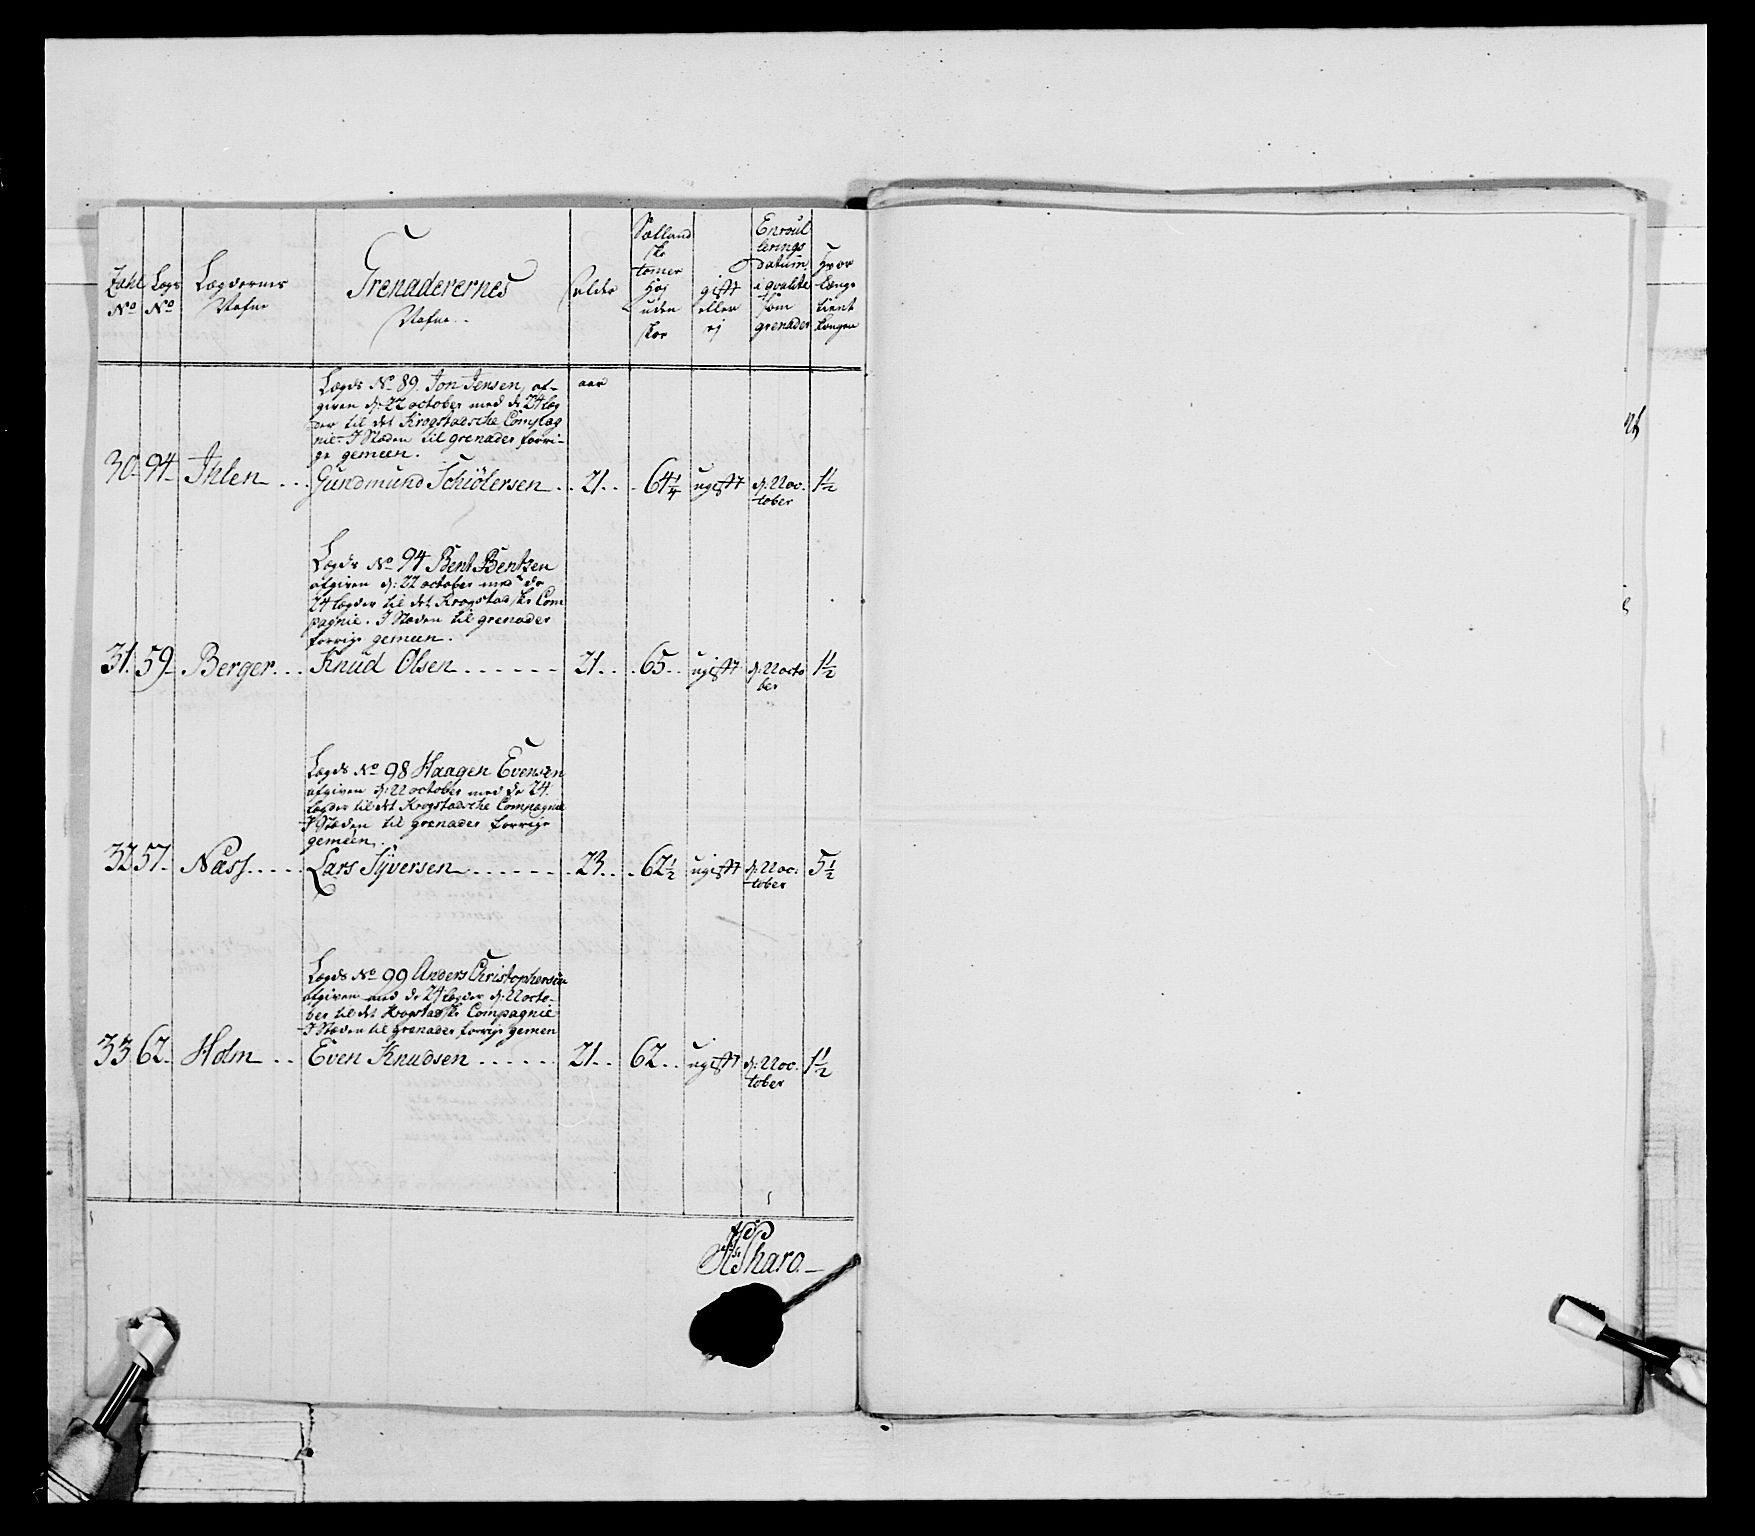 Zahl No
Legs No
Lægdernes Nafne
Grenaderernes Nafne
Alder
Sællandske tomer høj uden skoe
gift eller ej
Enroulleringsdatum i qvalité som grenader
Hvor længe tient kongen
Lægds No 89. Jon Jensen, af-
given d: 22 october med de 24 læg
der til det Krogstadsche Compag
nie. I Stæden til grenader forri-
ge gemeen.
aar
30. 94. Ihlen ... Gundmund Schiölersen .. 21 .. 64 1/4 ugift d: 22 oc- 1 1/2
tober
Lægds No 94 Bent Bentzen
afgiven d: 22 october med de
24 lægder til det Krogstadske Com
pagnie. I Stæden til grenader
forrige gemeen.
31. 59. Berger ... Knud Olsen ...... 21 .. 65 .. ugift d: 22 octo 1 1/2
ber
Lægds No 98 Haagen Evensen
afgiven d: 22 october med de 24
lægder til det Krogstadsche Compagnie
I Stæden til grenader forrige
gemeen.
32. 57. Næss ..... Lars Syversen ...... 23 .. 62 1/2 ugift d: 22 oc- 5 1/2
tober
Lægds No 99 Anders Christophersen
afgiven med de 24 lægder d: 22 octo-
ber til det Krogstadske Compagnie
I Stæden til grenader forrige gemen
33. 62. Holm .. Even Knudsen ...... 21 .. 62 .. ugift d: 22 oc- 1 1/2
tober
Pharo.